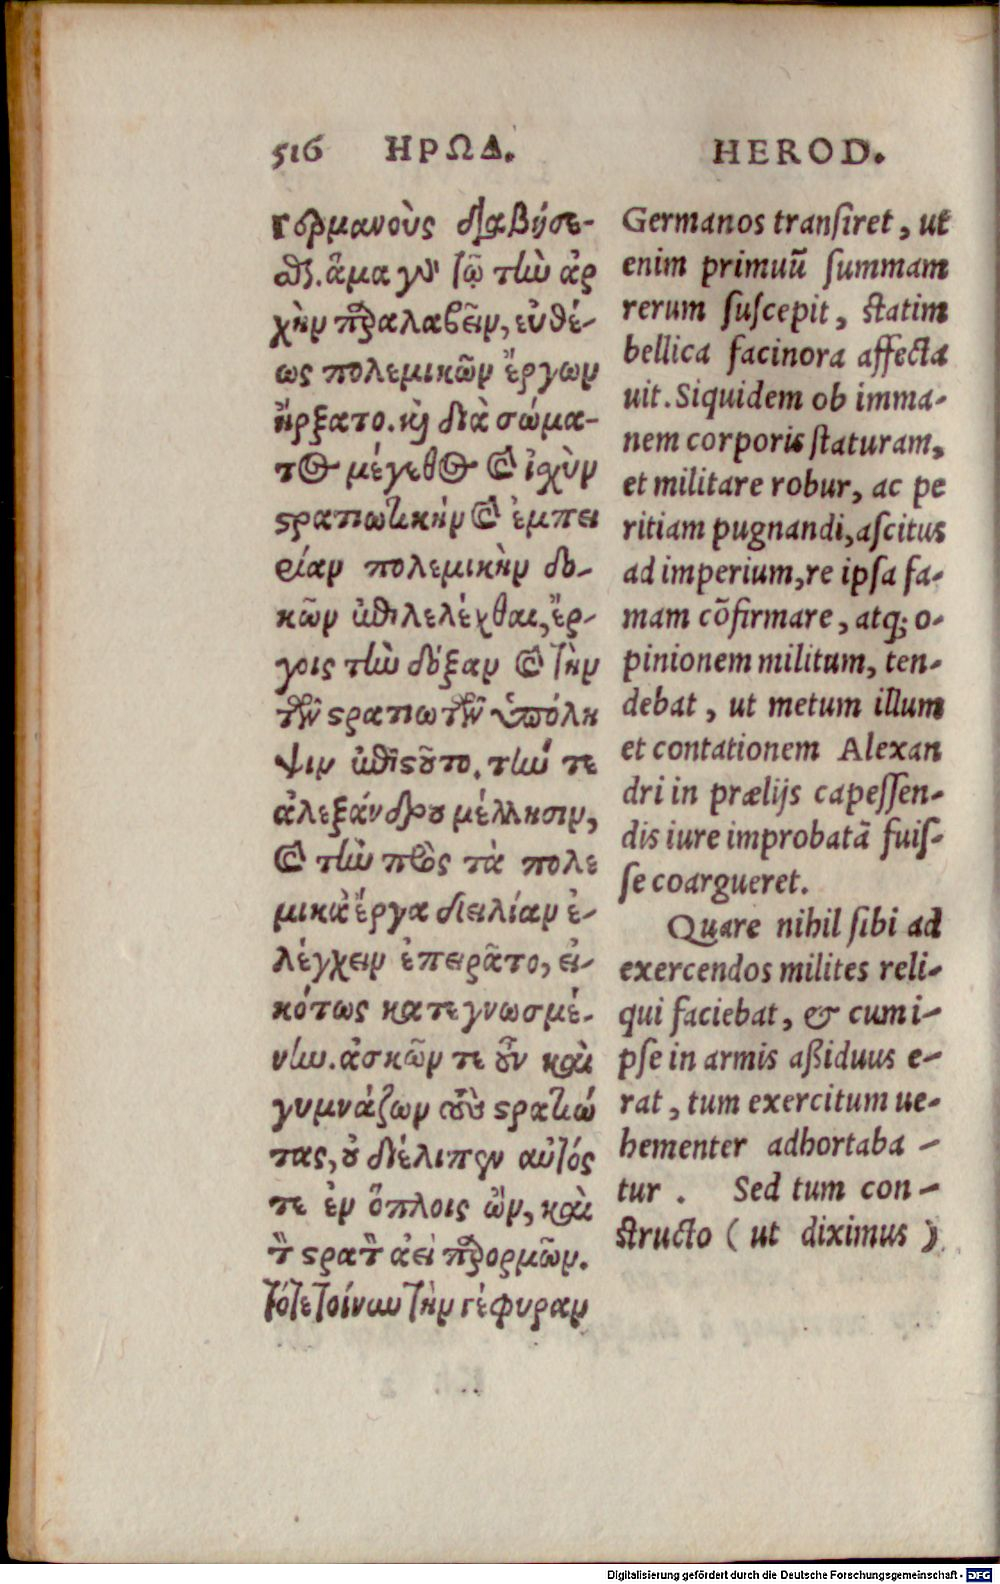 516 ΗΡΩΔ.
Γερμανοὺς διαβήσε-
θαι. ἅμα γὰρ τῷ τὴν ἀρ
χὴν παραλαβεῖν, εὐθέ-
ως πολεμικῶν ἔργων
ἤρξατο. καὶ διὰ σώμα-
τος μέγεθος καὶ ἰσχὺν
στρατιωτικὴν καὶ ἐμπει
ρίαν πολεμικὴν δο-
κῶν ἐπιλελέχθαι, ἔρ-
γοις τὴν δόξαν καὶ τὴν
τῶν στρατιωτῶν ὑπόλη
ψιν ἐπιστοῦτο. τήν τε
ἀλεξάνδρου μέλλησιν,
καὶ τὴν πρὸς τὰ πολε
μικὰ ἔργα δειλίαν ἐ-
λέγχειν ἐπειρᾶτο, εἰ-
κότως κατεγνωσμέ-
νην. ἀσκῶν τε οὖν καὶ
γυμνάζων τοὺς στρατιώ
τας, οὐ διέλιπεν αὐτός
τε ἐν ὅπλοις ὢν, καὶ
τὸν στρατὸν ἀεὶ παρορμῶν.
τότε τοίνυν τὴν γέφυραν
HEROD.
Germanos transiret, ut
enim primuū summam
rerum suscepit, statim
bellica facinora affecta
uit. Siquidem ob imma-
nem corporis staturam,
et militare robur, ac pe
ritiam pugnandi, ascitus
ad imperium, re ipsa fa-
mam cōfirmare, atq; o-
pinionem militum, ten-
debat, ut metum illum
et contationem Alexan
dri in prælijs capessen-
dis iure improbatā fuis-
se coargueret.
Quare nihil sibi ad
exercendos milites reli-
qui faciebat, & cum i-
pse in armis aßiduus e-
rat, tum exercitum ue-
hementer adhortaba-
tur. Sed tum con-
structo (ut diximus)
Digitalisierung gefördert durch die Deutsche Forschungsgemeinschaft - DFG